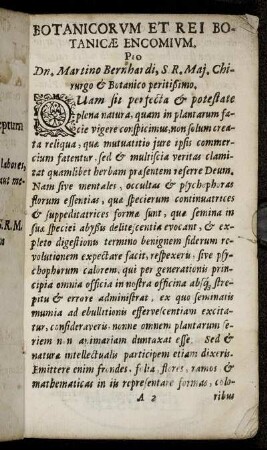 BOTANICORVM ET REI BO-
TANICÆ ENCOMIVM,
Pro
Dn. Martino Bernhardi, S. R. Maj. Chi-
rurgo & Botanico peritissimo.
QUam sit perfecta & potestate
plena natura, quam in plantarum fa-
cie vigere conspicimus, non solum crea-
ta reliqua, quæ mutuatitio jure ipsis commer-
cium fatentur, sed & multiscia veritas clami-
tat quamlibet herbam præsentem referre Deum.
Nam sive mentales, occultas & psychophoras
florum essentias, quæ specierum continuatrices
& suppeditatrices formæ sunt, quæ semina in
suæ speciei abysso delitescentia evocant, & ex-
pleto digestionis termino benignem siderum re-
volutionem expectare facit, respexeris, sive psy-
chophorum calorem, qui per generationis prin-
cipia omnia officia in nostra officina absq; stre-
pitu & errore administrat, ex quo seminalis
mumia ad ebullitionis effervescentiam excita-
tur, consideraveris, nonne omnem plantarum se-
riem non animariam duntaxat esse, Sed &
naturæ intellectualis participem etiam dixeris.
Emittere enim frondes, folia, flores, ramos, &
mathematicas in iis representare formas, colo-
A 2 ribus
eptum
labores,
S.R.M.